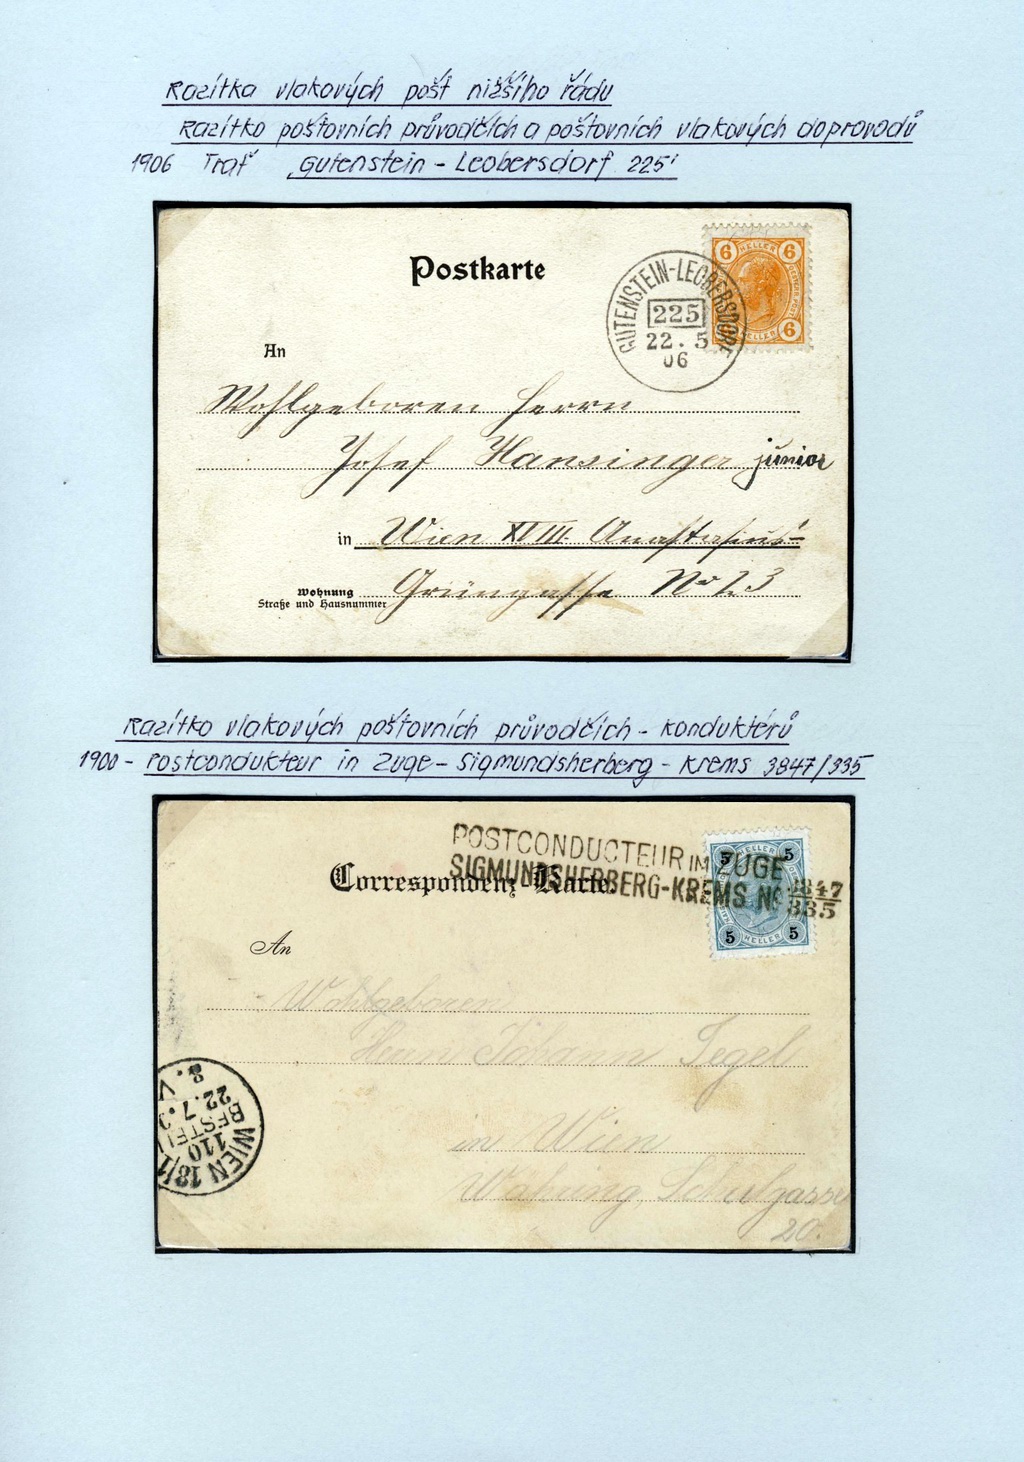 Razítka vlakových pošt nižšího řádu
Razítko poštovních průvodčích a poštovních vlakových doprovodů
1906 Trať „Gutenstein - Leobersdorf 225"
Postkarte
6 HELLER 6
GUTENSTEIN-LEOBERSDORF
225
22. 5
06
6
HELLER
An
Wohlgeboren Herrn
Josef Hansinger junior
in Wien XVIII. Anastasius-
Grüngasse No 23
Wohnung
Straße und Hausnummer
Razítko vlakových poštovních průvodčích - konduktérů
1900 - Postcondukteur in Zuge - Sigmundsherberg - Krems 3847/335
POSTCONDUCTEUR IM ZUGE
SIGMUNDSHERBERG-KREMS No 3847/335
Correspondenz-Karte.
5 HELLER 5
5 HELLER 5
An
Wohlgeboren
Herrn Johann Segel
in Wien
Währing, Schulgasse
20.
WIEN 18/1
110
BESTELLT
22.7.
8.V